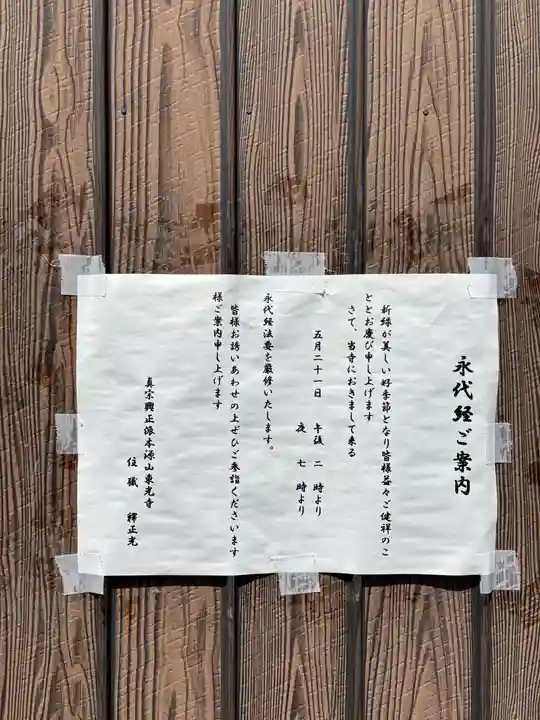 永代経ご案内
新緑が美しい好季節となり皆様益々ご健祥のこ
ととお慶び申し上げます
さて、当寺におきまして来る
五月二十一日 午後 二 時より
夜 七 時より
永代経法要を厳修いたします。
皆様お誘いあわせの上ぜひご参詣くださいます
様ご案内申し上げます
真宗興正派本源山東光寺
住職 釋正光